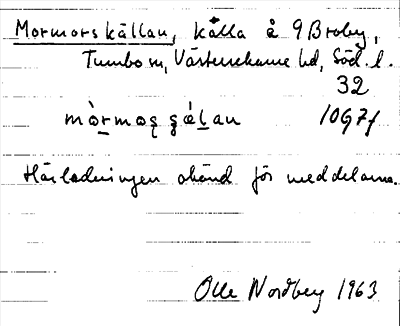 Mormorskällan, källa å 9 Broby,
Tumbo sn, Västerrekarne hd, Söd. l.
32
mòrmos̨ s̨álan 10G7f
Härledningen okänd för meddelarna.
Olle Nordberg 1963